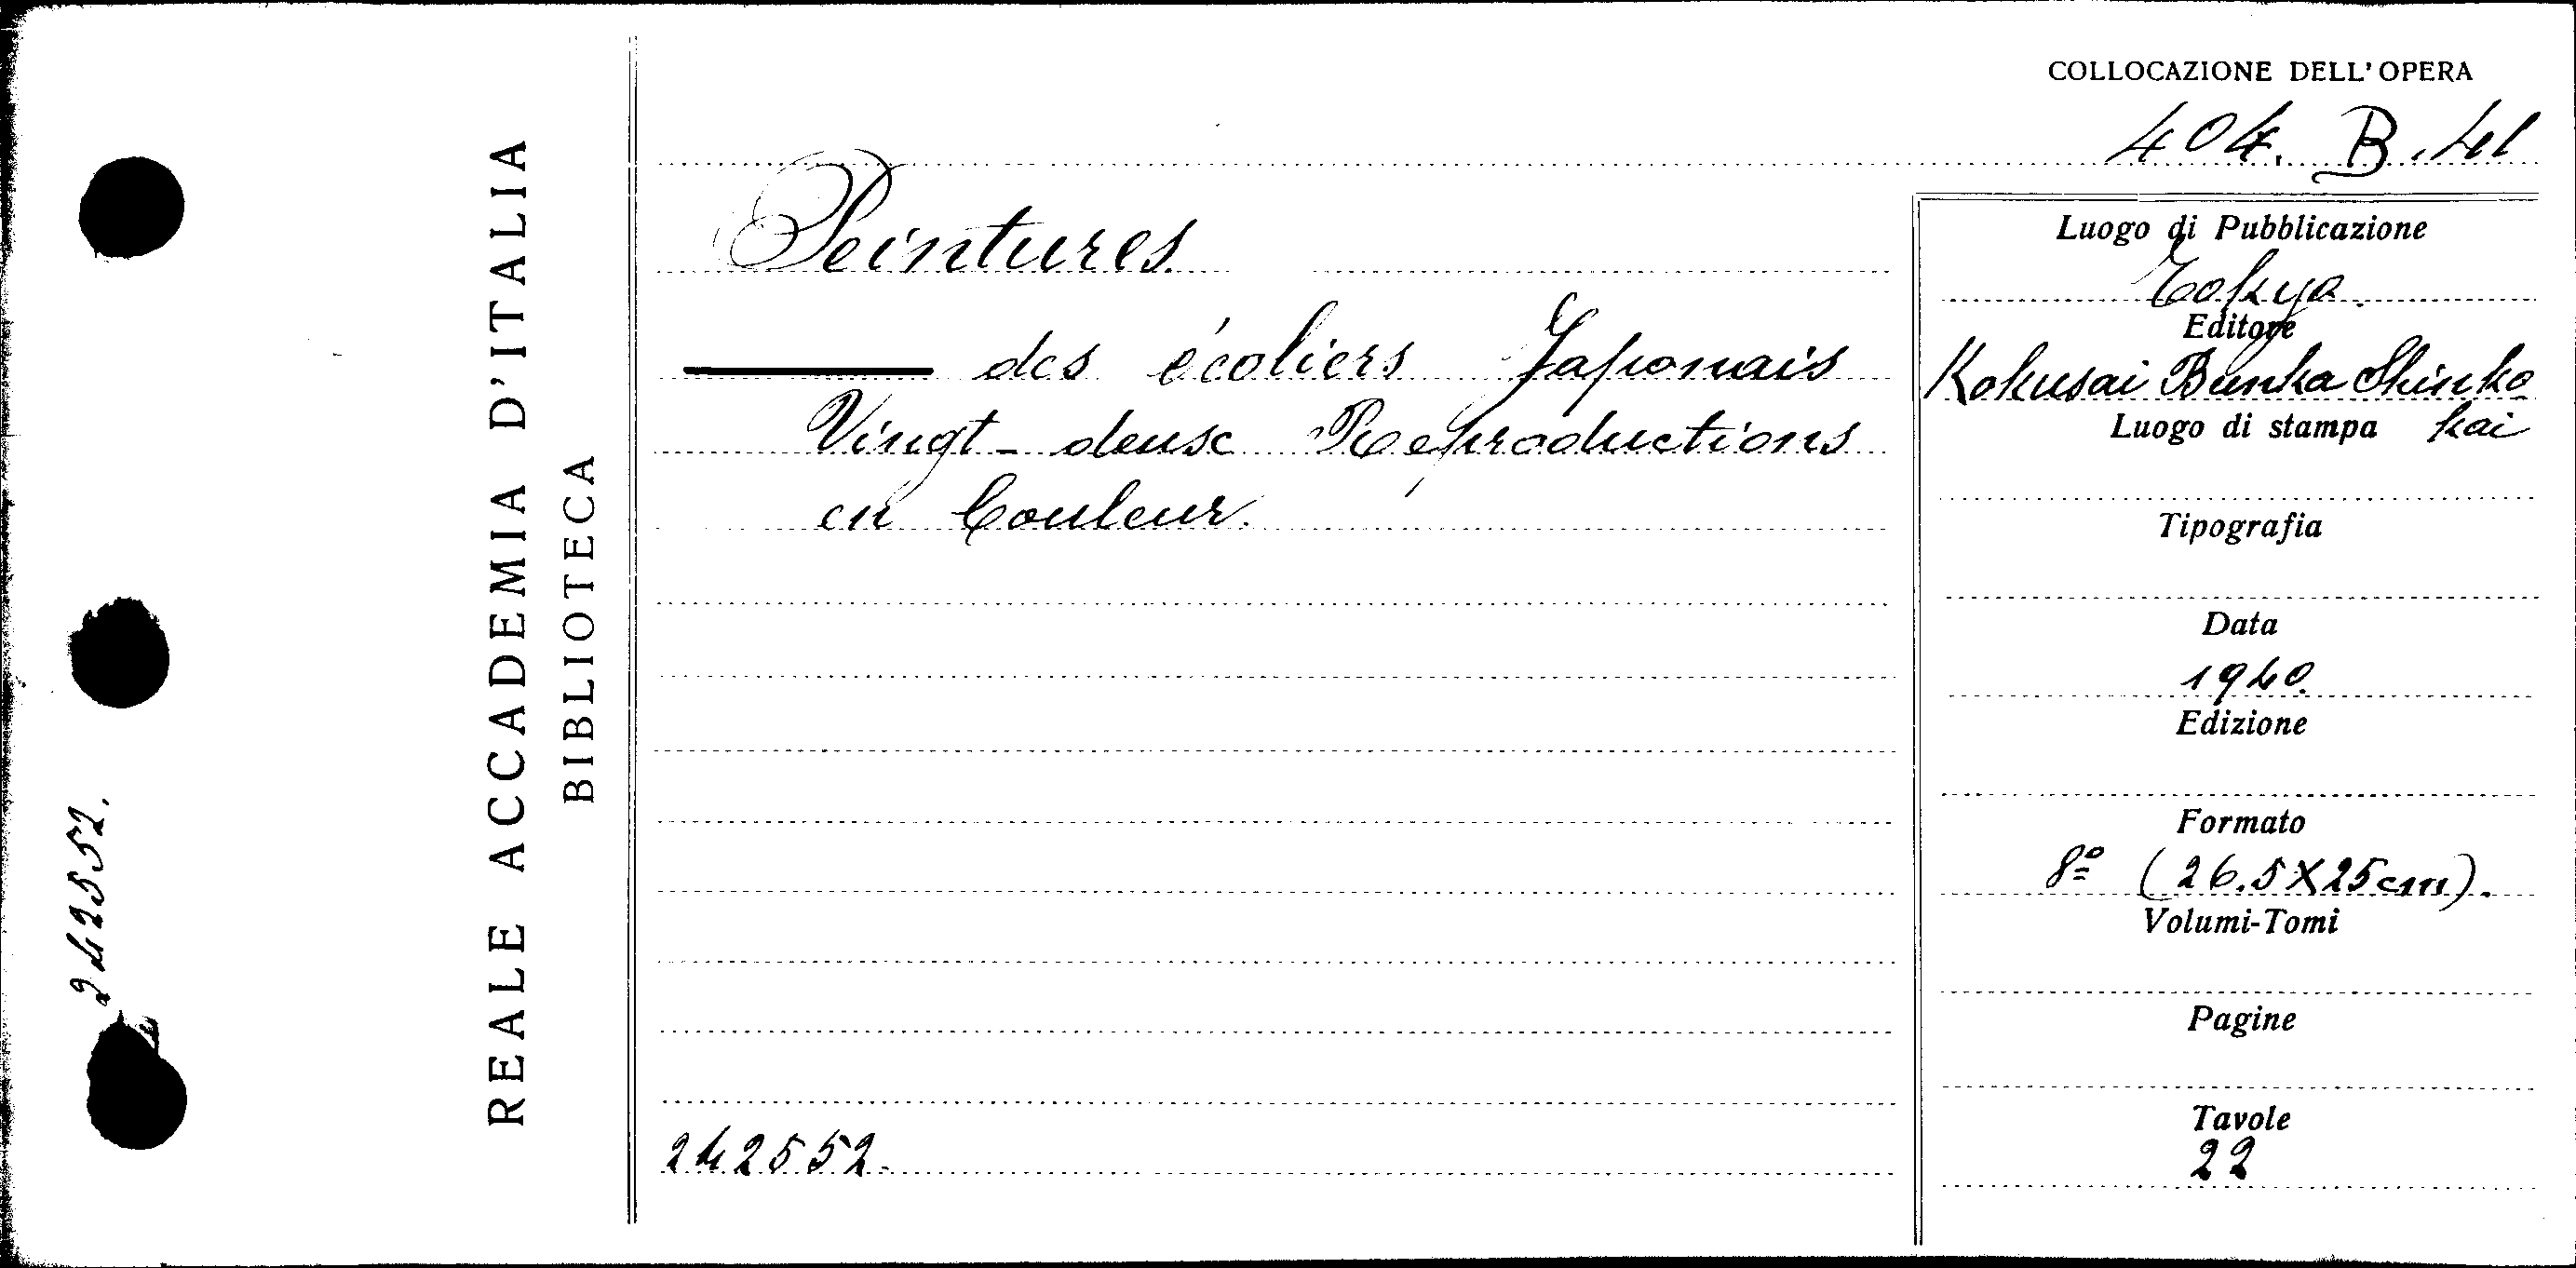 COLLOCAZIONE DELL'OPERA
404. B. 41
REALE ACCADEMIA D'ITALIA
BIBLIOTECA
242552.
Peintures
——— des écoliers Japonais
Vingt-deux Reproductions
en Couleur.
242552.
Luogo di Pubblicazione
Tokyo.
Editore
Kokusai Bunka Shinko
kai
Luogo di stampa
Tipografia
Data
1940.
Edizione
Formato
8º (26.5X25cm).
Volumi-Tomi
Pagine
Tavole
22